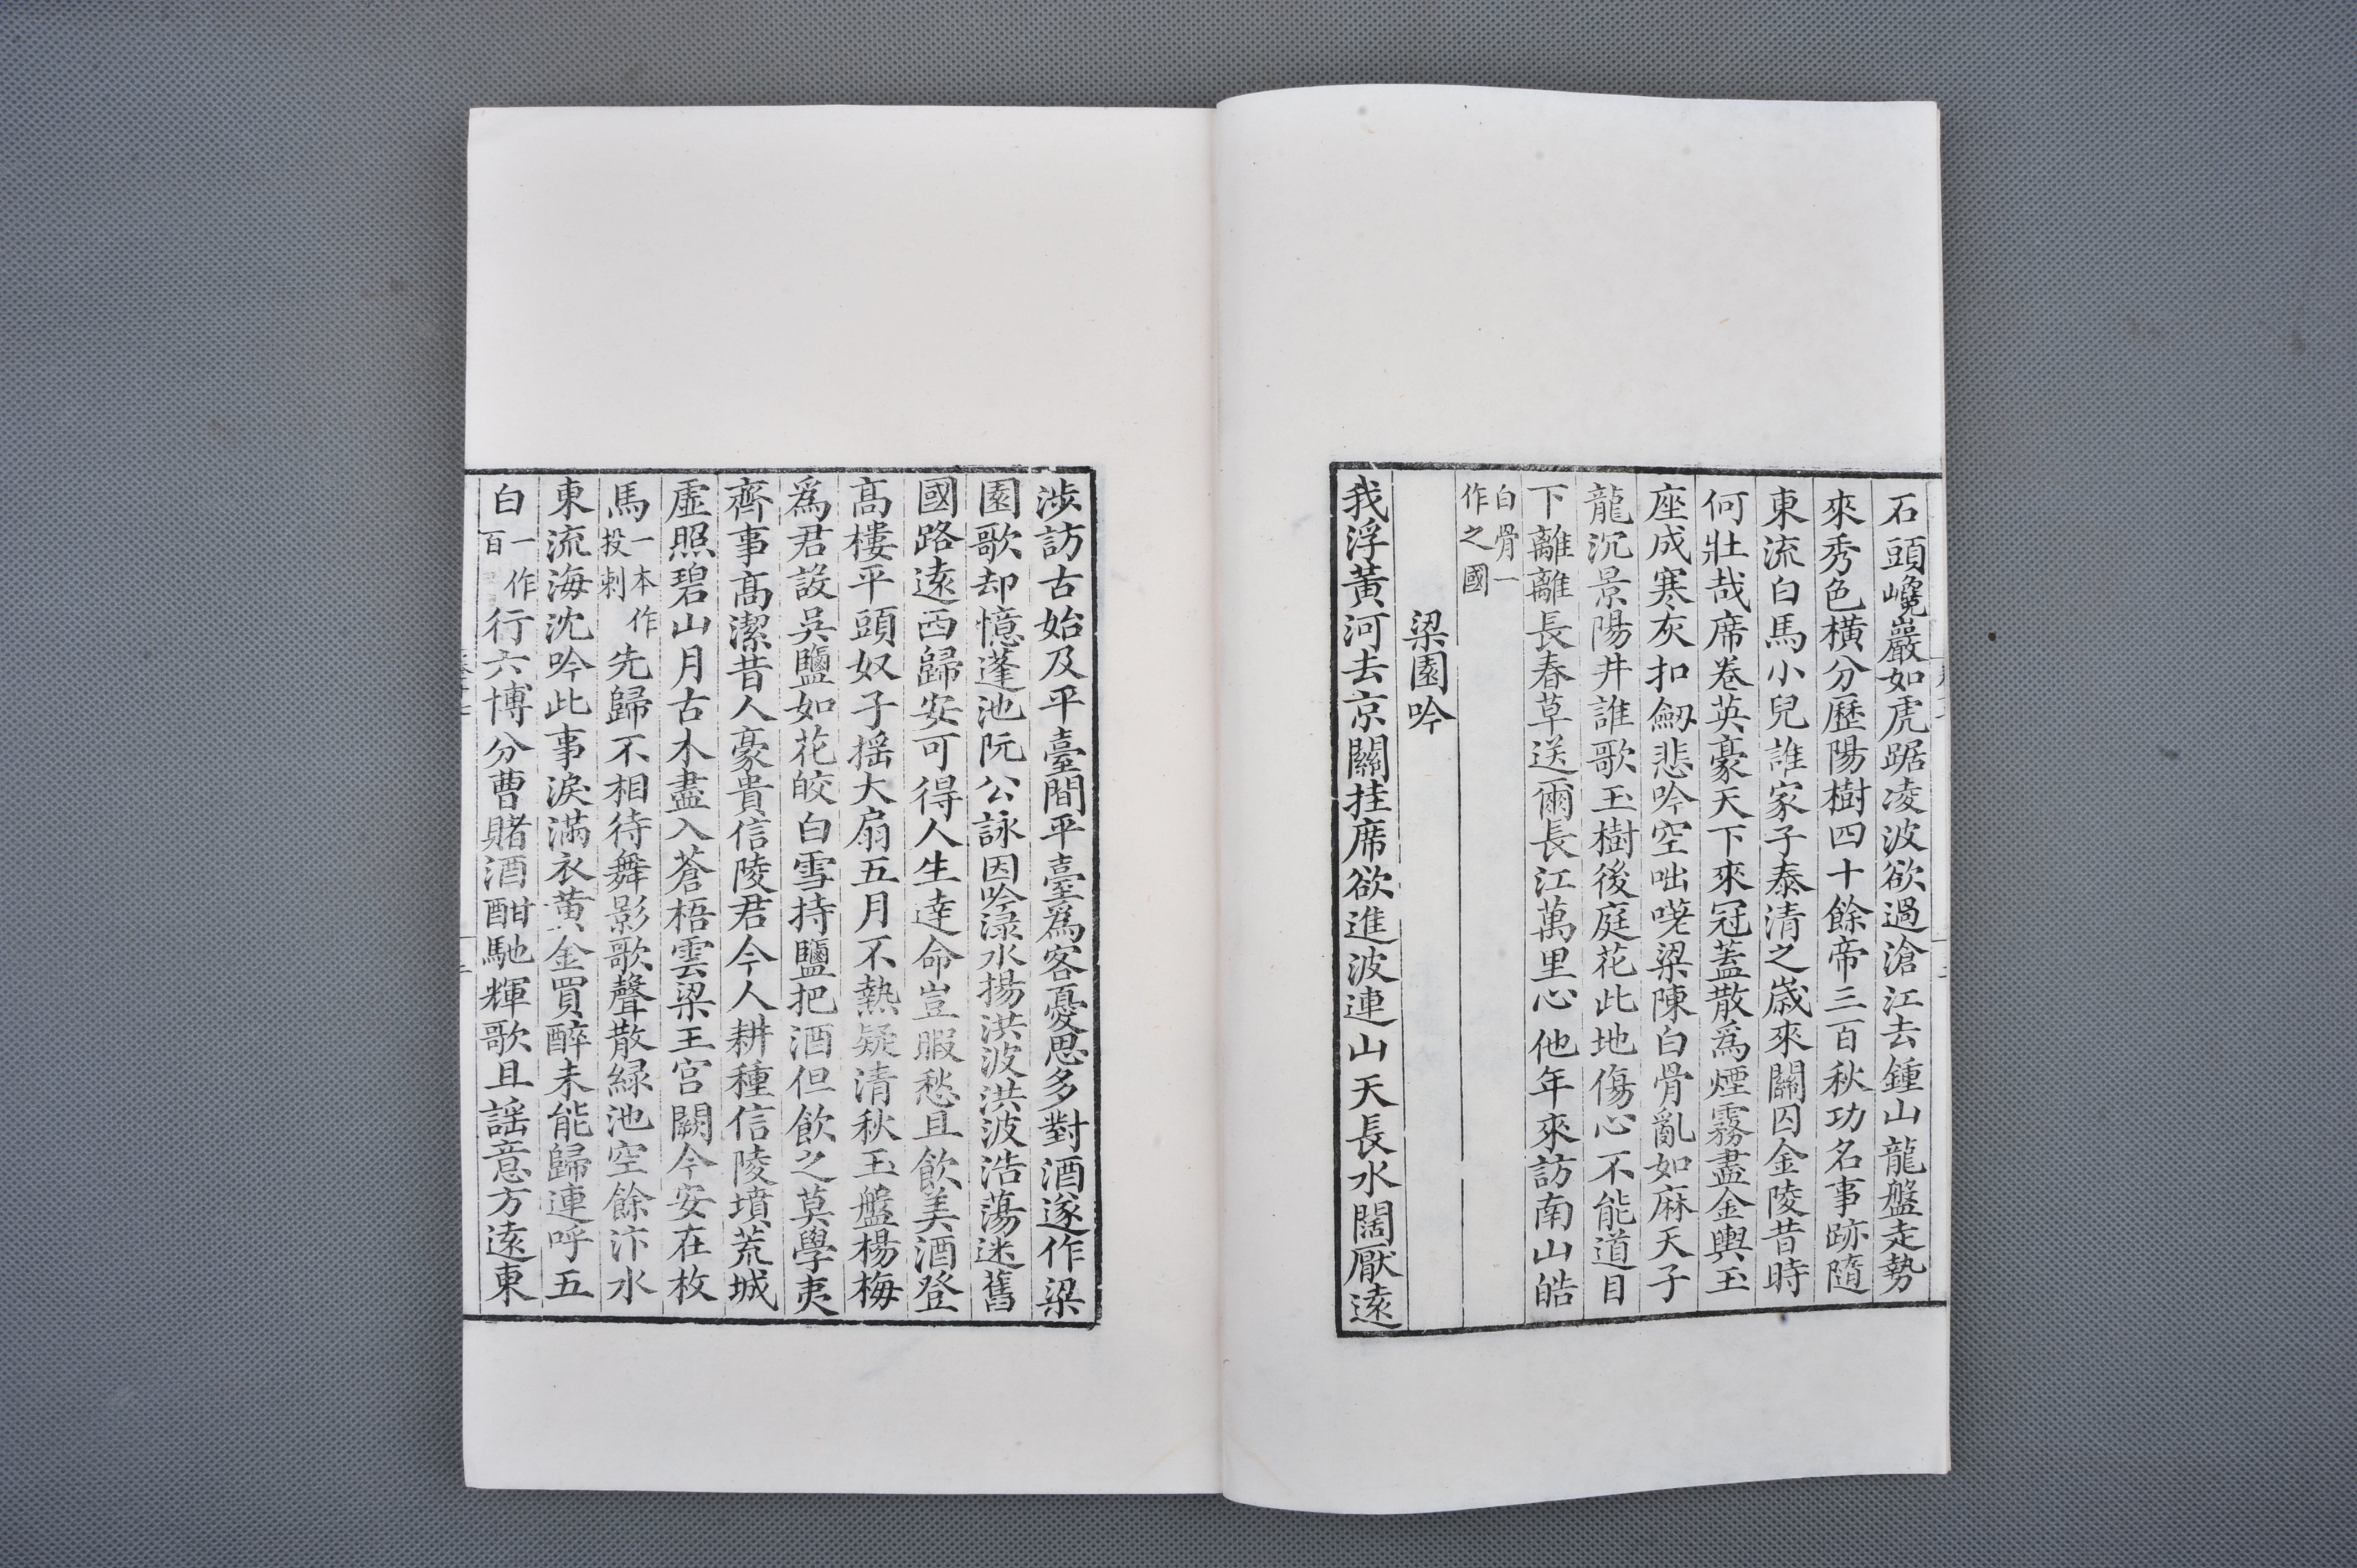 石頭巉巖如虎踞凌波欲過滄江去鍾山龍盤走勢
來秀色橫分歷陽樹四十餘帝三百秋功名事跡隨
東流白馬小兒誰家子泰清之歲來關囚金陵昔時
何壯哉席卷英豪天下來冠蓋散爲煙霧盡金輿玉
座成寒灰扣劒悲吟空咄嗟梁陳白骨亂如麻天子
龍沉景陽井誰歌玉樹後庭花此地傷心不能道目
下離離長春草送爾長江萬里心他年來訪南山皓
白骨一
作之國
梁園吟
我浮黃河去京關挂席欲進波連山天長水闊厭遠
涉訪古始及平臺間平臺爲客憂思多對酒遂作梁
園歌却憶蓬池阮公詠因吟淥水揚洪波洪波浩蕩迷舊
國路遠西歸安可得人生達命豈暇愁且飲美酒登
高樓平頭奴子搖大扇五月不熱疑清秋玉盤楊梅
爲君設吳鹽如花皎白雪持鹽把酒但飲之莫學夷
齊事高潔昔人豪貴信陵君今人耕種信陵墳荒城
虛照碧山月古木盡入蒼梧雲梁王宮闕今安在枚
馬一本作投刺先歸不相待舞影歌聲散緑池空餘汴水
東流海沈吟此事淚滿衣黃金買醉未能歸連呼五
白一作百行六博分曹賭酒酣馳輝歌且謡意方遠東